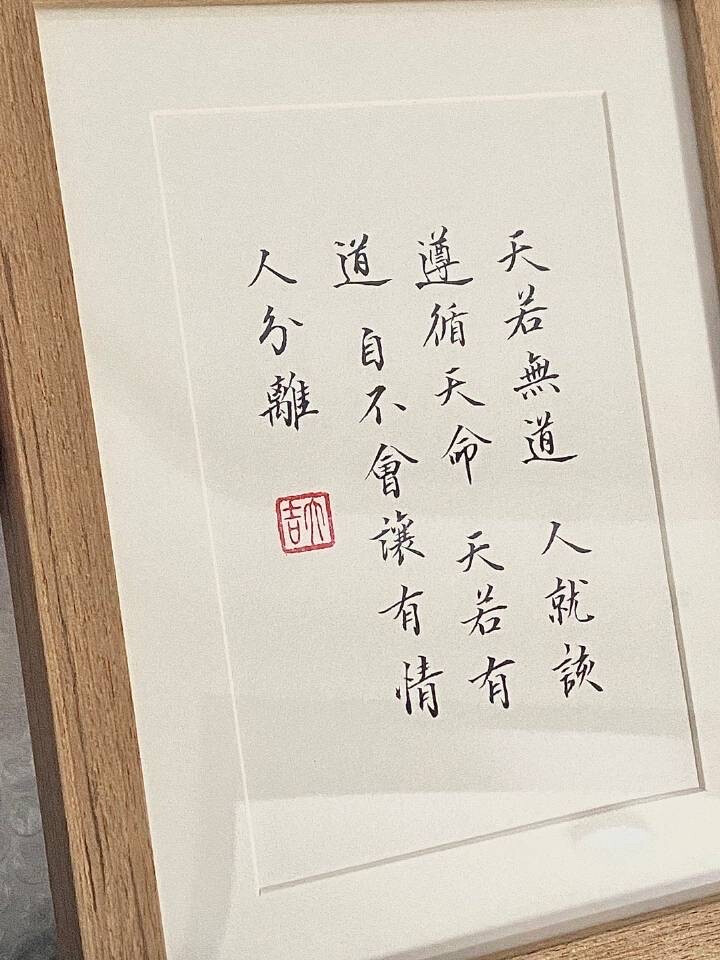 天若無道 人就該
遵循天命 天若有
道 自不會讓有情
人分離
大吉